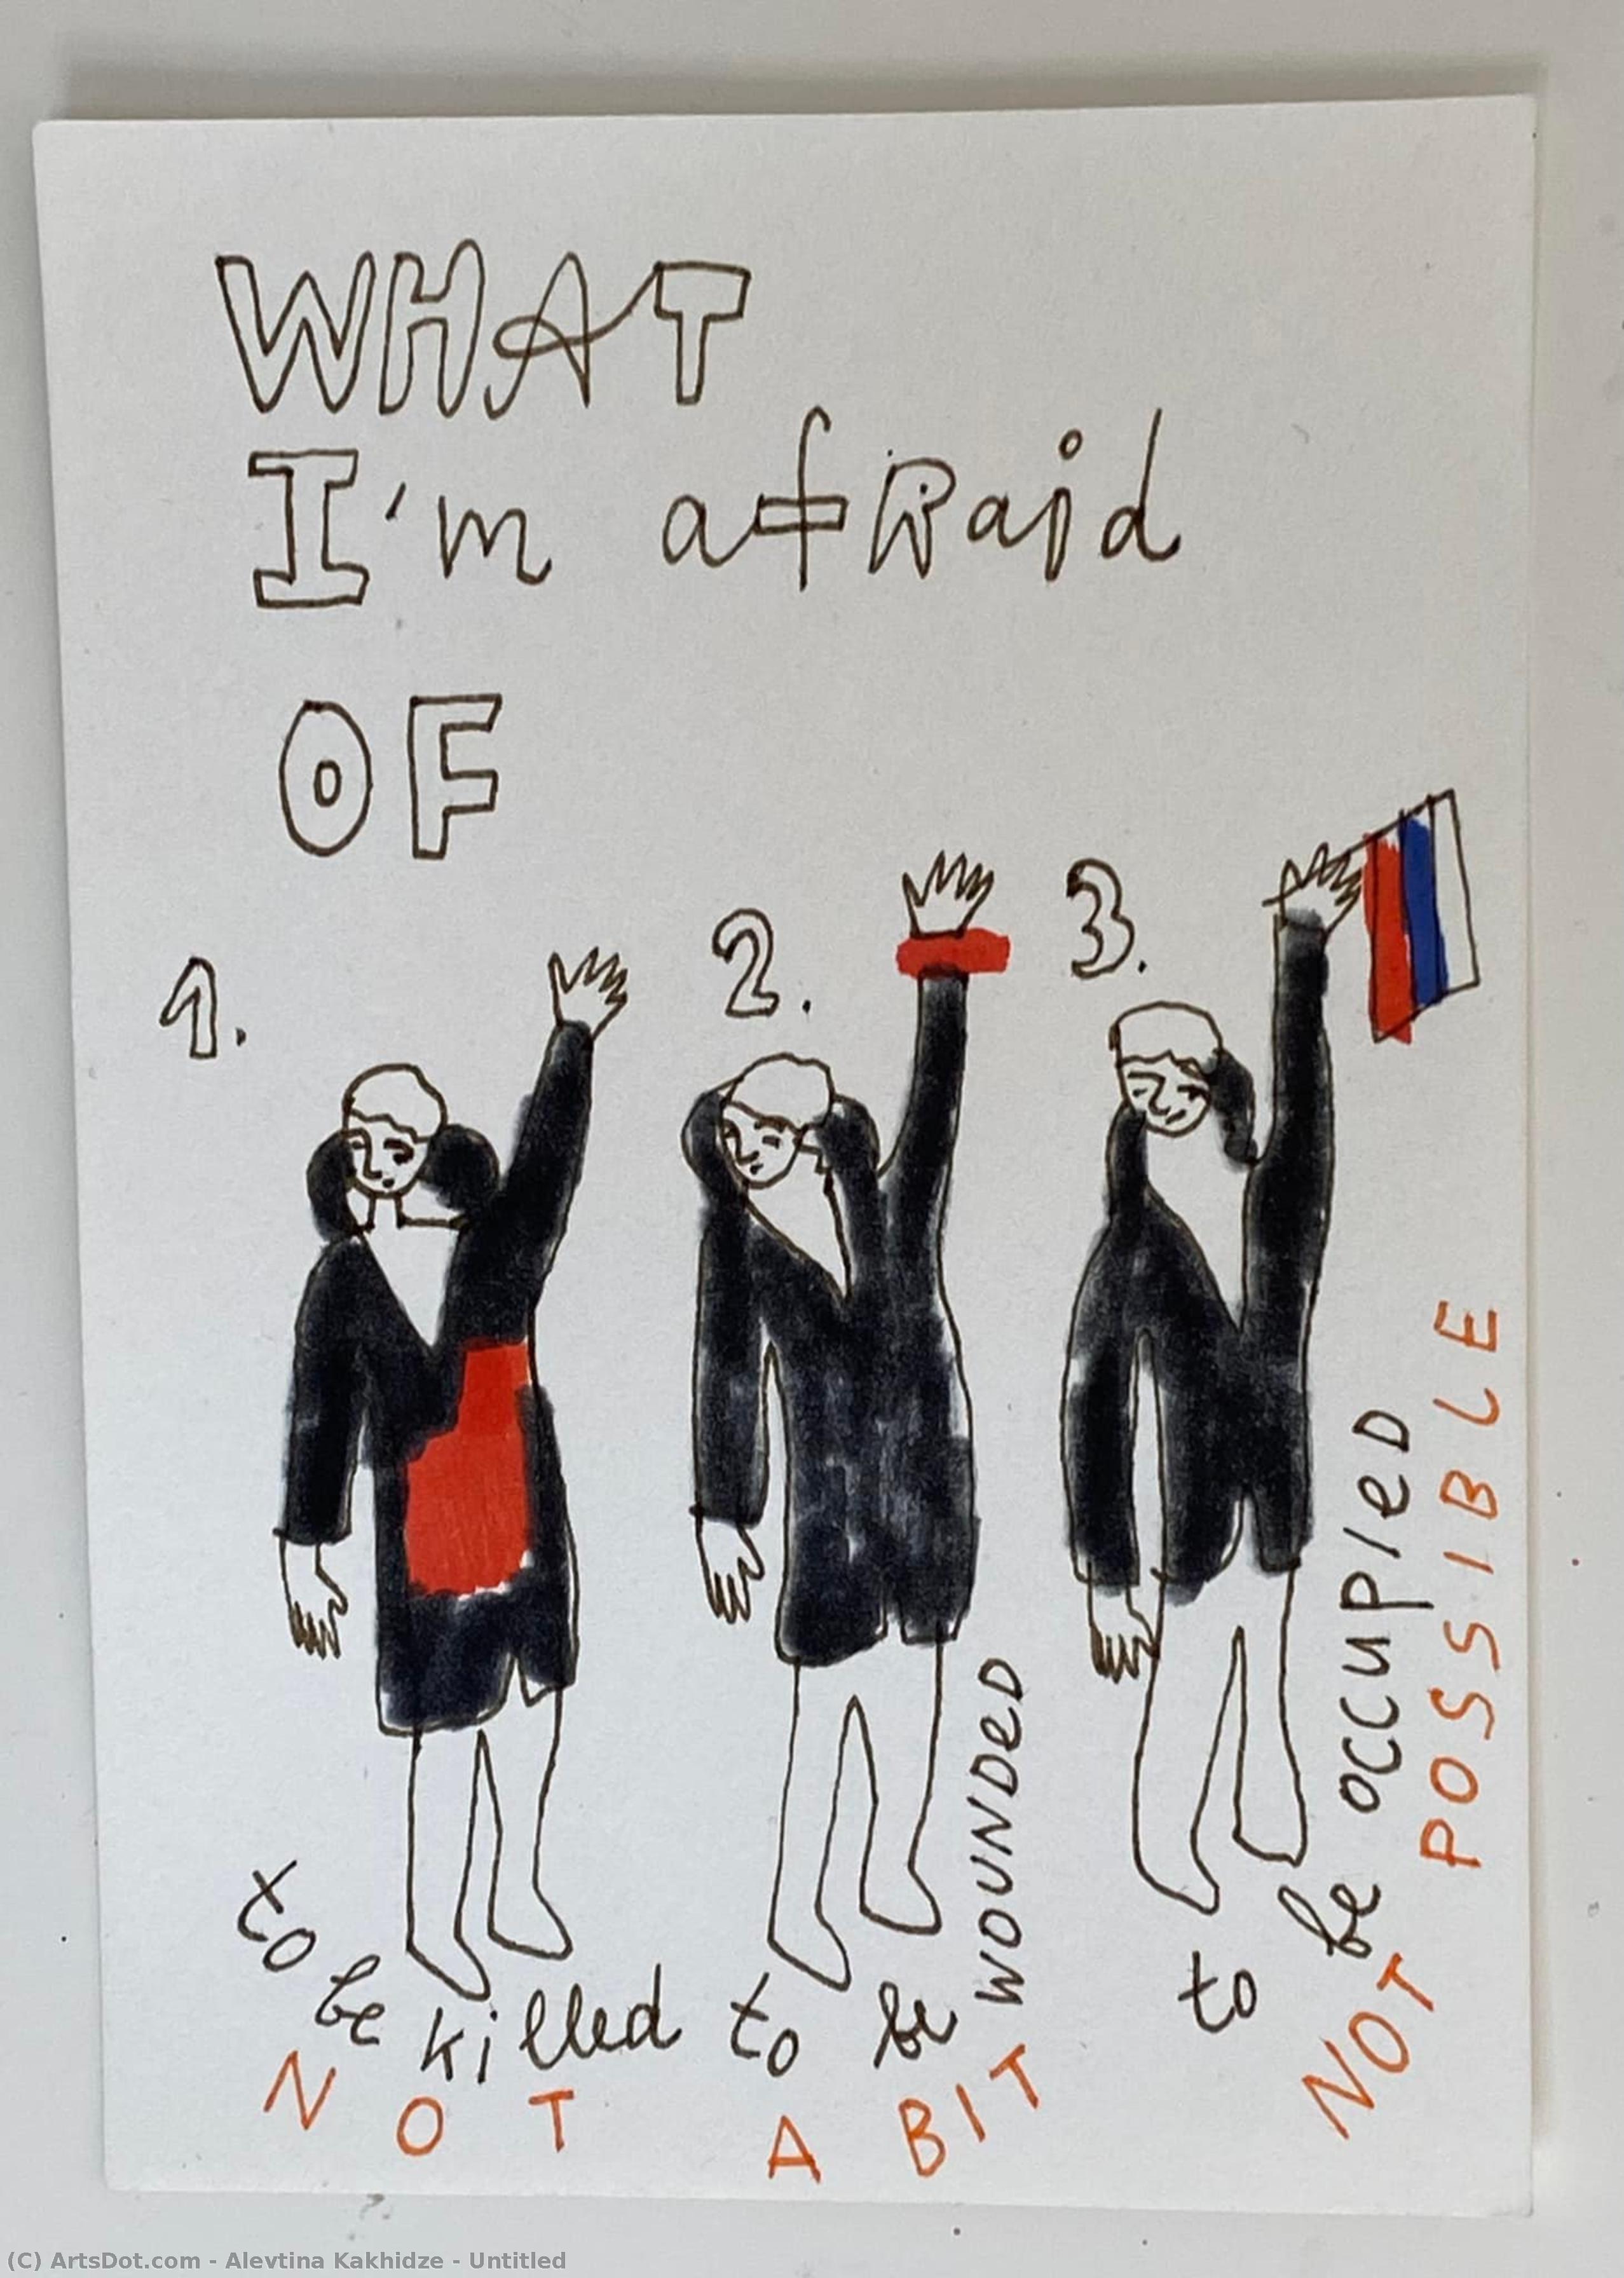 WHAT
I'm afRaid
OF
1.
2.
3.
to be killed
NOT
to be WOUNDeD
A BIT
to be OCCUPIeD
NOT POSSIBLE
(C) ArtsDot.com - Alevtina Kakhidze - Untitled